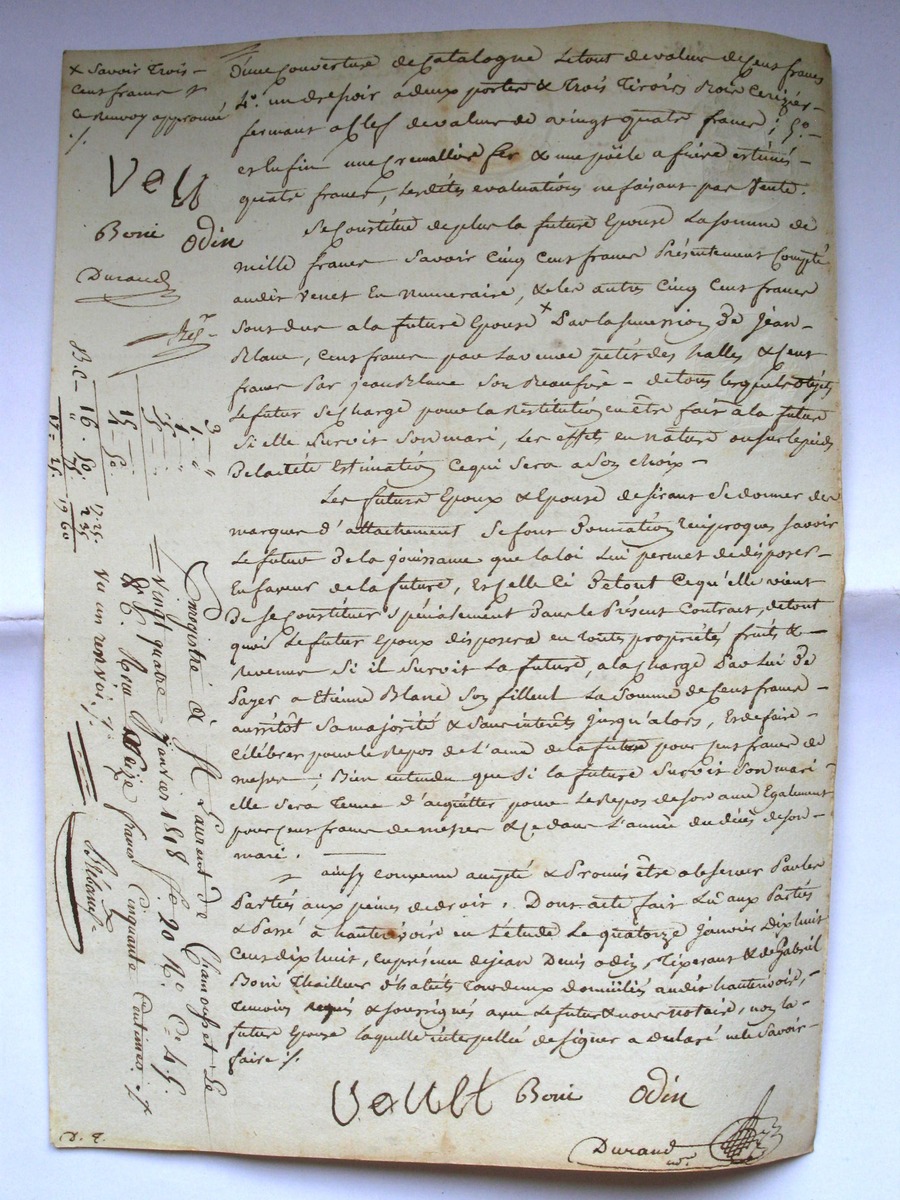 x Savoir Trois
Cent francs
Ce renvoy approuvé
Boni Odin
Durand
D'une Couverture de Catalogne Letout devaleur de Cent francs
4.º un drepoir a deux portes & Trois Tiroirs Bois Cerizier
fermant a Clef devaleur de vingt quatre francs ; 5.º
est Enfin une Cremallière fer & une poële a frire estimés
quatre francs, Lesdites evaluations ne faisant pas Vente.
Se Constitue de plus la future Epouse La somme de
mille francs Savoir Cinq Cent francs Présentement Compté
audit Venet En numeraire, & les autres Cinq Cent francs
Sont dus a la future Epouse x Par la succession De Jean
Blanc, Cent francs par La veuve petit des halles & Cent
francs Par jean Blanc Son Beaufrère - de tous lesquels objets
Le futur Se Charge pour la Restitution en être fait à la future
Si elle Survit Son mari, Les effets en nature ou sur le pied
De la dite Estimation Ce qui Sera a Son choix -
Les futurs Epoux & Epouse desirant Se donner des
marques d'attachement Se font Donnation Réciproques Savoir
Le futur De la jouissance que la loi Lui permet de disposer
En faveur de la future, Et Celle Ci De tout Ce qu'elle vient
De Se Constituer Spécialement Dans le Présent Contrat, de tout
quoi Le futur Epoux disposera en toutes propriétés fruits &
revenus Si il Survit La future, a la charge Par Lui De
Payer a Etienne Blanc Son filleut La Somme de Cent francs
aussitôt Sa majorité & Sans interêts jusqu'alors, Et de faire
Célébrer pour le Repos de L'ame de la future pour Cent francs de
messes ; Bien entendu que si la future Survit Son mari
elle Sera Tenue d'acquitter pour Le Repos de son ame Egalement
pour Cent francs de messes & Ce dans L'année du décès de son
mari.
ainsy convenu accepté & Promis être observer Par les
Parties aux peines de droit. Dont acte fait Lu aux Parties
& Passé à hauterivoire en L'étude Le quatorze Janvier Dix huit
Cent dix huit, En présence de jean Denis Odin, Tixerant & de Gabriel
Boni Thailleur d'habits Tous deux domiciliés audit hauterivoire,
Temoins requis & soussignés avec Le futur & nous notaire, non la
future Epouse laquelle interpellée de signer a Declaré ne le Savoir
faire ./.
Boni Odin
Durand
Enregistré à St Laurent de Chamousset Le
Vingt quatre janvier 1818 fo 20 Ro C. 4. 5.
Reçu Seize francs Cinquante Centimes
Vu un renvoi ./.